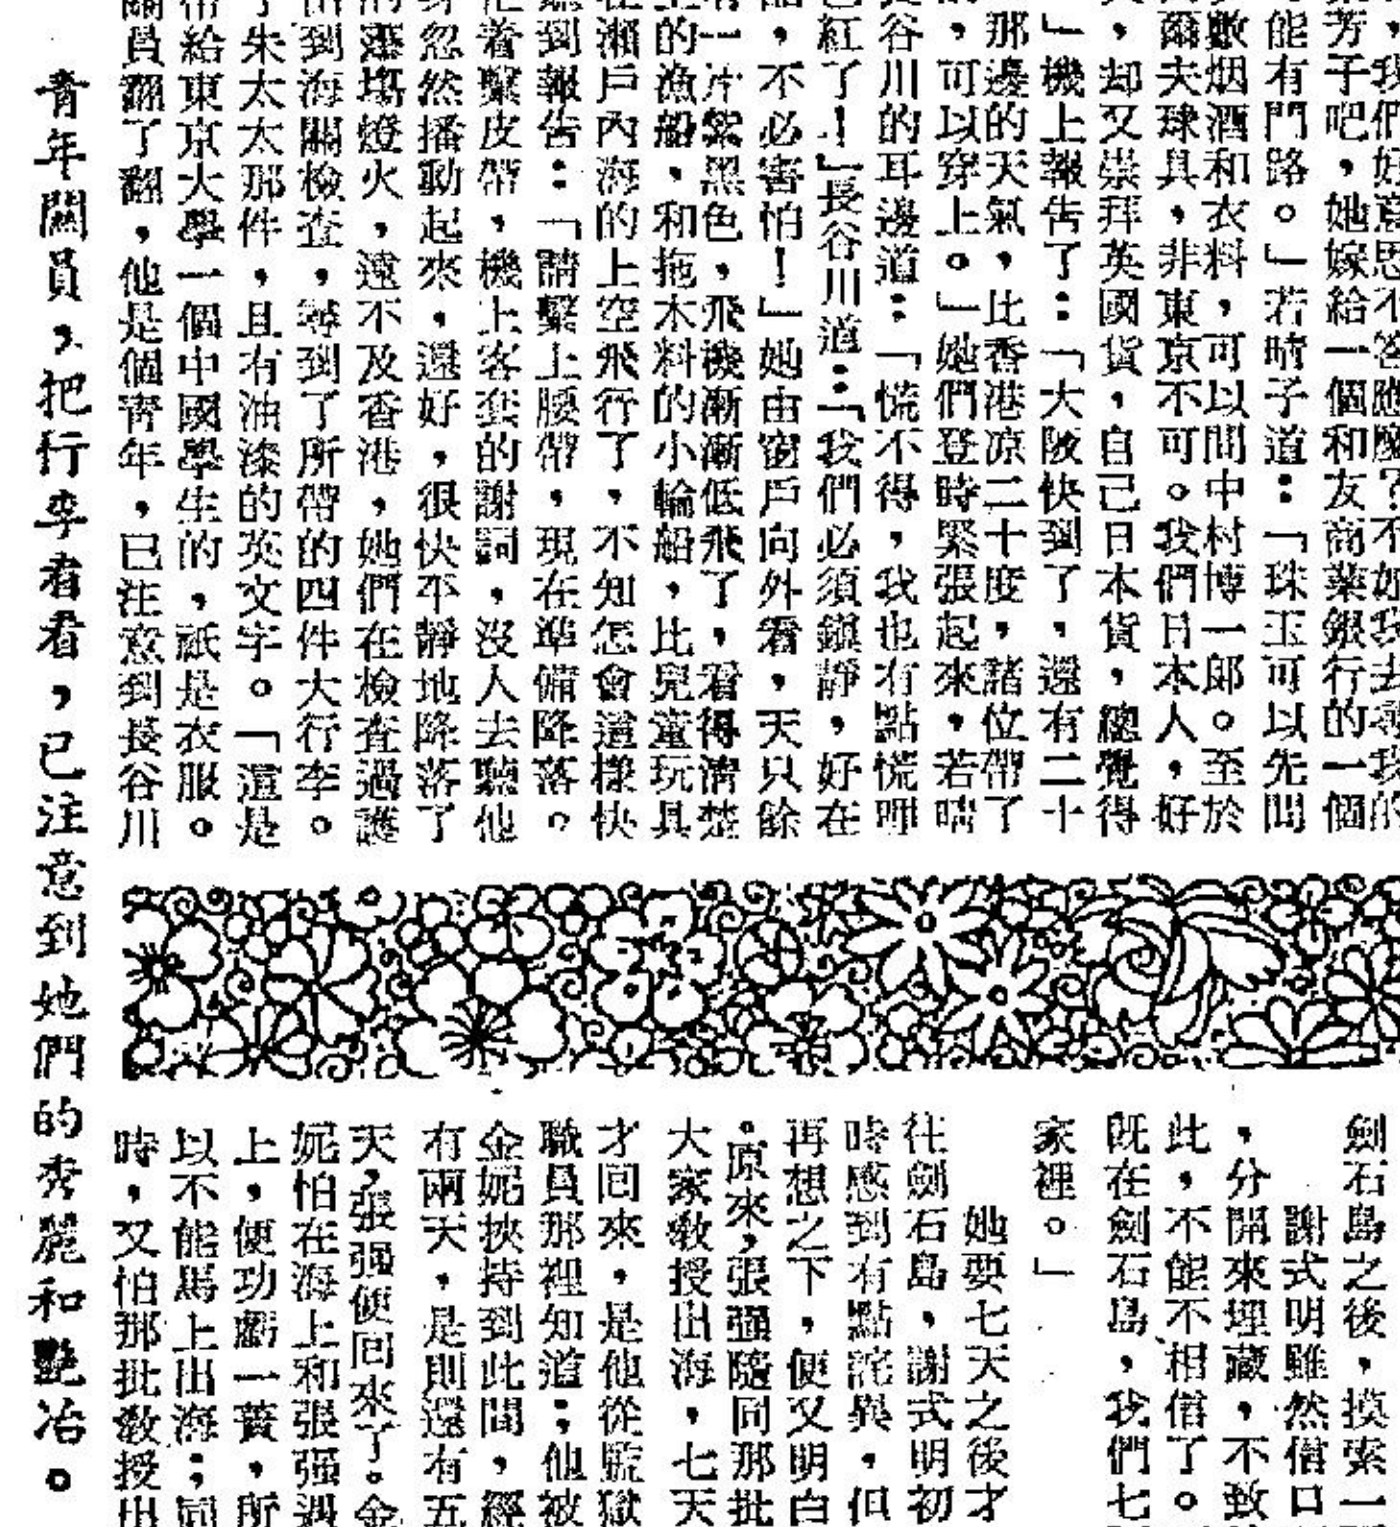 芳子吧，她嫁給一個和友商業銀行的一個
能有門路。」若晴子道：「珠玉可以先問
數烟酒和衣料，可以問中村博一郎。至於
爾夫球具，非東京不可。我們日本人，好
，却又崇拜英國貨，自己日本貨，總覺得
」機上報告了：「大阪快到了，還有二十
那邊的天氣，比香港凉二十度，諸位帶了
，可以穿上。」她們登時緊張起來，若晴
谷川的耳邊道：「慌不得，我也有點慌哩
紅了！」長谷川道：「我們必須鎮靜，好在
，不必害怕！」她由窗戶向外看，天只餘
一片紫黑色，飛機漸漸低飛了，看得清楚
的漁船，和拖木料的小輪船，比兒童玩具
瀨戶內海的上空飛行了，不知怎會這樣快
到報告：「請繫上腰帶，現在準備降落。
着繫皮帶，機上客套的謝詞，沒人去聽他
忽然播動起來，還好，很快平靜地降落了
塲燈火，遠不及香港，她們在檢查過護
到海關檢查，尋到了所帶的四件大行李。
朱太太那件，且有油漆的英文字。「這是
給東京大學一個中國學生的，祇是衣服。
員翻了翻，他是個青年，已注意到長谷川
青年關員，把行李看看，已注意到她們的秀麗和艷冶。
劍石島之後，摸索一
謝式明雖然信口
，分開來埋藏，不致
此，不能不相信了。
既在劍石島，我們七
家裡。」
她要七天之後才
往劍石島，謝式明初
時感到有點詫異，但
再想之下，便又明白
。原來，張强隨同那批
大家教授出海，七天
才回來，是他從監獄
職員那裡知道；他被
金妮挾持到此間，經
有兩天，是則還有五
天，張强便回來了。金
妮怕在海上和張强遇
上，便功虧一簣，所
以不能馬上出海；同
時，又怕那批教授出